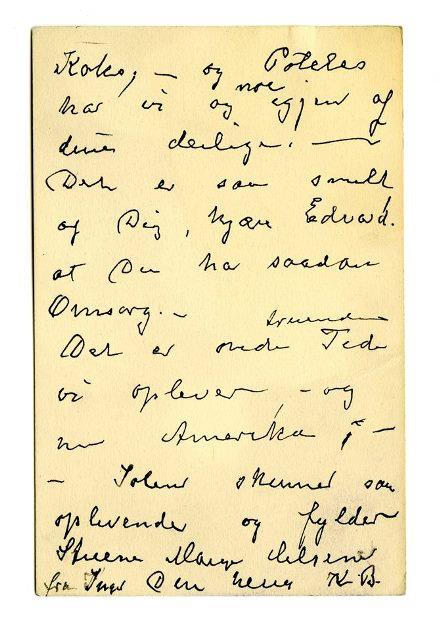 Koks, – og Poteter
har vi og noe igjen af
dine deilige. –
Det er saa snilt
af Dig, kjære Edvard.
at Du har saadan
Omsorg. –
Det er onde truende Tider
vi oplever, – og
nu Amerika! –
– Solen skinner saa
oplivende og fylder
Stuene Mange hilsener
fra Inger Din K. B.